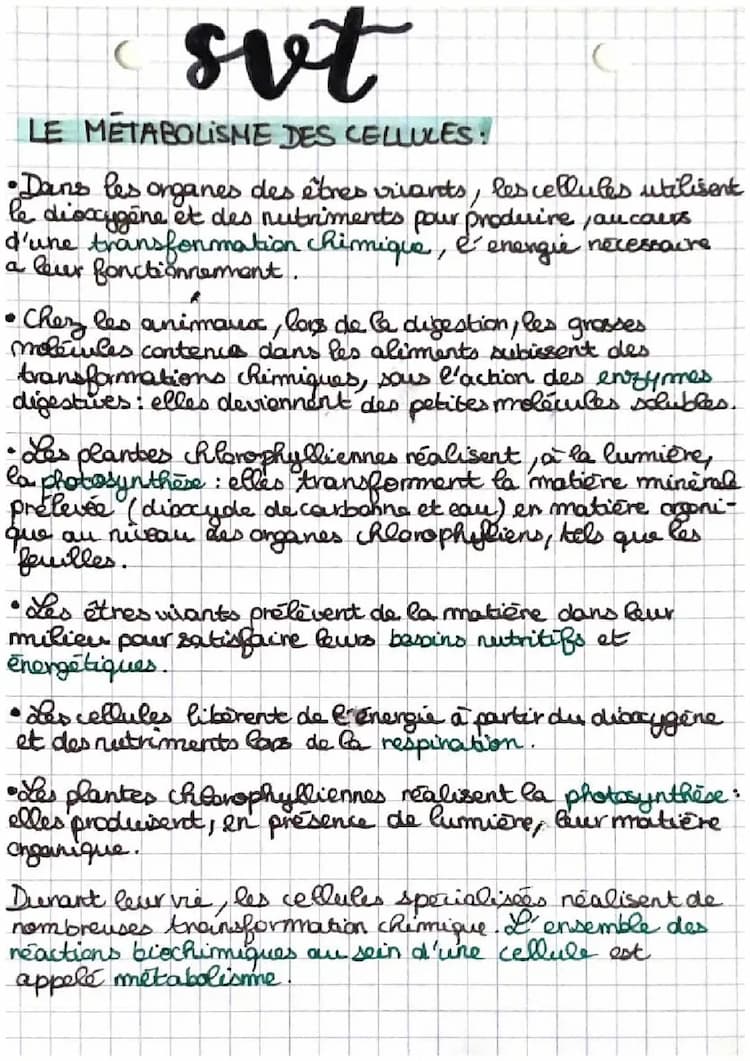 svt
LE MÉTABOLISME DES CELLULES :
• Dans les organes des êtres vivants, les cellules utilisent
le dioxygène et des nutriments pour produire, au cours
d'une transformation chimique, l'énergie nécessaire
a leur fonctionnement.
• Chez les animaux, lors de la digestion, les grosses
molécules contenus dans les aliments subissent des
transformations chimiques, sous l'action des enzymes
digestives : elles deviennent des petites molécules solubles.
• Les plantes chlorophylliennes réalisent, à la lumière,
la photosynthèse : elles transforment la matière minérale
prélevée (dioxyde de carbone et eau) en matière organi-
que au niveau des organes chlorophylliens, tels que les
feuilles.
• Les êtres vivants prélèvent de la matière dans leur
milieu pour satisfaire leurs besoins nutritifs et
énergétiques.
• Les cellules libèrent de l'énergie à partir du dioxygène
et des nutriments lors de la respiration.
• Les plantes chlorophylliennes réalisent la photosynthèse :
elles produisent, en présence de lumière, leur matière
organique.
Durant leur vie, les cellules spécialisées réalisent de
nombreuses transformation chimique. L'ensemble des
réactions biochimiques au sein d'une cellule est
appelé métabolisme.